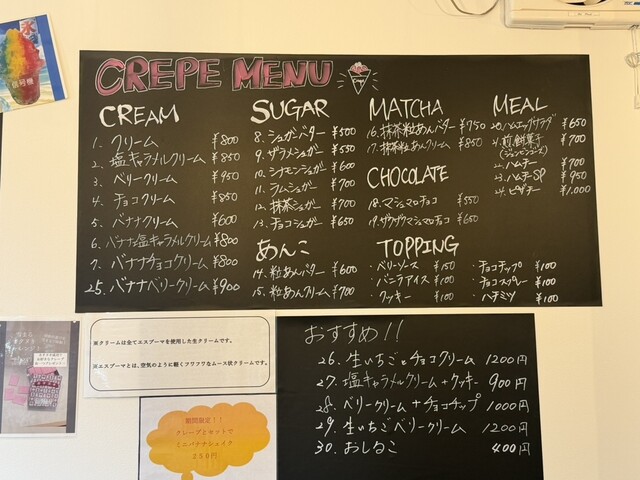 CREPE MENU
CREAM
1. クリーム ¥800
2. 塩キャラメルクリーム ¥850
3. ベリークリーム ¥950
4. チョコクリーム ¥850
5. バナナクリーム ¥600
6. バナナ塩キャラメルクリーム ¥800
7. バナナチョコクリーム ¥800
25. バナナベリークリーム ¥900
SUGAR
8. シュガーバター ¥500
9. ザラメシュガー ¥500
10. シナモンシュガー ¥600
11. ラムシュガー ¥700
12. 抹茶シュガー ¥700
13. チョコシュガー ¥650
あんこ
14. 粒あんバター ¥600
15. 粒あんクリーム ¥700
MATCHA
16. 抹茶粒あんバター ¥750
17. 抹茶粒あんクリーム ¥850
CHOCOLATE
18. マシュマロチョコ ¥550
19. ザクザクマシュマロチョコ ¥650
MEAL
20. ハムエッグサラダ ¥650
21. 煎餅菓子 ¥700
22. ハムチー ¥700
23. ハムチーSP ¥950
24. ピザチー ¥1,000
TOPPING
・ベリーソース ¥150
・バニラアイス ¥100
・クッキー ¥100
・チョコチップ ¥100
・チョコスプレー ¥100
・ハチミツ ¥100
※クリームは全てエスプーマを使用した生クリームです。
※エスプーマとは、空気のように軽くフワフワなムース状クリームです。
期間限定!!
クレープとセットで
ミニバナナシェイク
250円
おすすめ!!
26. 生いちごとチョコクリーム 1200円
27. 塩キャラメルクリーム+クッキー 900円
28. ベリークリーム+チョコチップ 1000円
29. 生いちごベリークリーム 1200円
30. おしるこ 400円